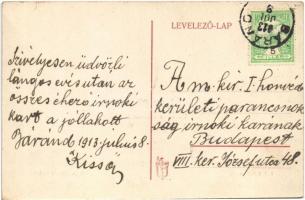 LEVELEZŐ-LAP
Szívélyesen üdvözli
lángos evés után az
összes éhező irnoki
kart a jóllakott
Zaránd, 1913 julius 8.
Kissó
ZARÁND
A m. kir. I honvéd
kerületi parancsnok-
ság irnoki karának
Budapest
VIII. ker. József utca 48.